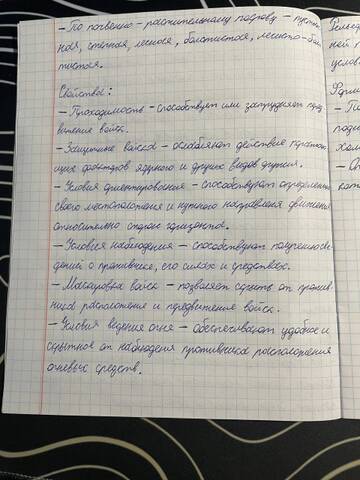 - По почвенно-растительному покрову - пустын
ная, степная, лесная, болотистая, лесисто-боло
тистая.
Свойства:
- Проходимость - способствует или затрудняет пере
движение войск.
- Защитные войска - ослабляют действие поража
ющих факторов ядерного и других видов оружия.
- Условия ориентирования - способствуют определению
своего местоположения и нужного направления движения
относительно сторон горизонта.
- Условия наблюдения - способствуют получению све
дений о противнике, его силах и средствах.
- Маскировка войск - позволяет скрыть от против
ника расположение и передвижение войск.
- Условия ведения огня - обеспечивают удобное и
скрытное от наблюдения противника расположения
огневых средств.
Рельеф
ной
услов